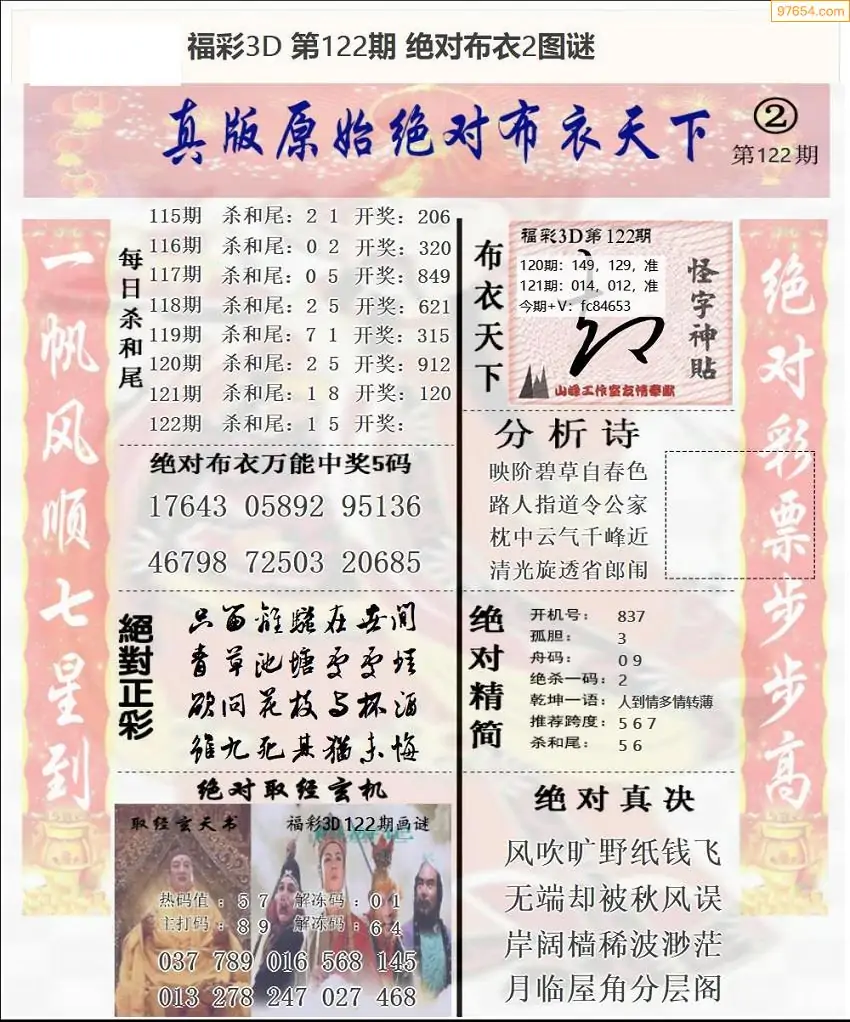 97654.com
福彩3D 第122期 绝对布衣2图谜
真版原始绝对布衣天下
②
第122期
一帆风顺七星到
每日杀和尾
115期 杀和尾：2 1 开奖：206
116期 杀和尾：0 2 开奖：320
117期 杀和尾：0 5 开奖：849
118期 杀和尾：2 5 开奖：621
119期 杀和尾：7 1 开奖：315
120期 杀和尾：2 5 开奖：912
121期 杀和尾：1 8 开奖：120
122期 杀和尾：1 5 开奖：
绝对布衣万能中奖5码
17643 05892 95136
46798 72503 20685
絕對正彩
只留離騷在世间
青草池塘处处蛙
欲问花枝与杯酒
雖九死其猶未悔
绝对取经玄机
取经玄天书
福彩3D122期画谜
热码值：5 7 解冻码：0 1
主打码：8 9 解冻码：6 4
037 789 016 568 145
013 278 247 027 468
布衣天下
福彩3D第122期
120期：149，129，准
121期：014，012，准
今期+V：fc84653
怪字神贴
山峰工作室友情奉献
分析诗
映阶碧草自春色
路人指道令公家
枕中云气千峰近
清光旋透省郎闱
绝对精简
开机号：837
孤胆：3
舟码：0 9
绝杀一码：2
乾坤一语：人到情多情转薄
推荐跨度：5 6 7
杀和尾：5 6
绝对真决
风吹旷野纸钱飞
无端却被秋风误
岸阔樯稀波渺茫
月临屋角分层阁
绝对彩票步步高